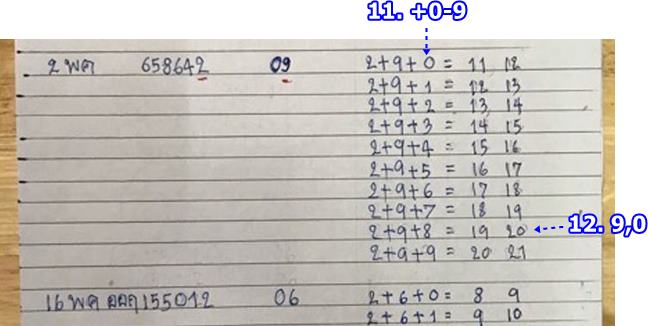 11. +0-9
2 พค 658642 09 2+9+0 = 11 12
2+9+1 = 12 13
2+9+2 = 13 14
2+9+3 = 14 15
2+9+4 = 15 16
2+9+5 = 16 17
2+9+6 = 17 18
2+9+7 = 18 19
2+9+8 = 19 20 12. 9,0
2+9+9 = 20 21
16 พค ออก 155012 06 2+6+0 = 8 9
2+6+1 = 9 10